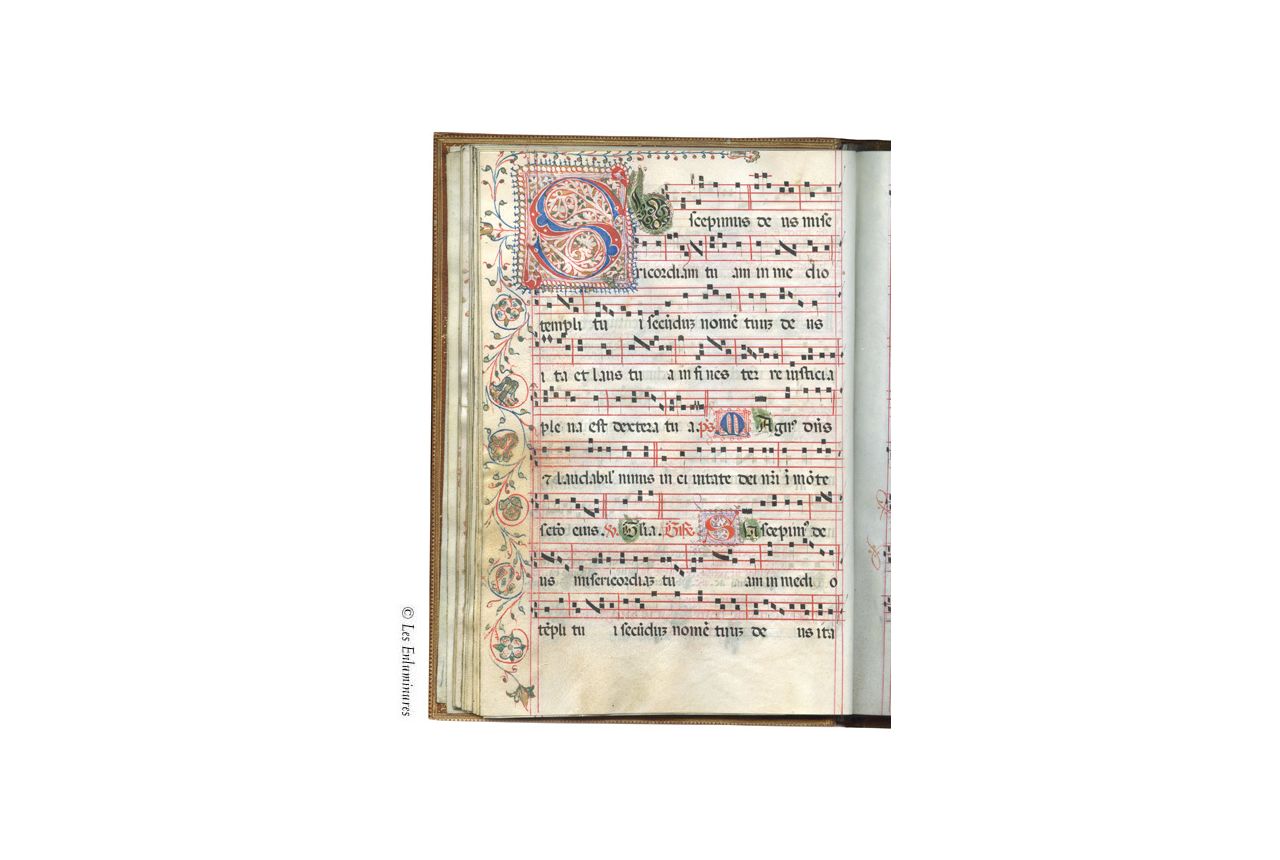 Suscepimus de us mise
ricordiam tu am in me dio
templi tu i secũduz nomẽ tuuz de us
i ta et laus tu a in fi nes ter re iusticia
ple na est dextera tu a. ps. Magn⁹ dñs
⁊ laudabil' nimis in ci uitate dei nr̃i ĩ mõte
scto eius. V. Glia.
Suscepim⁹ de
us misericordiaz tu am in medi o
tẽpli tu i secũduz nomẽ tuuz de us ita
© Les Enluminures